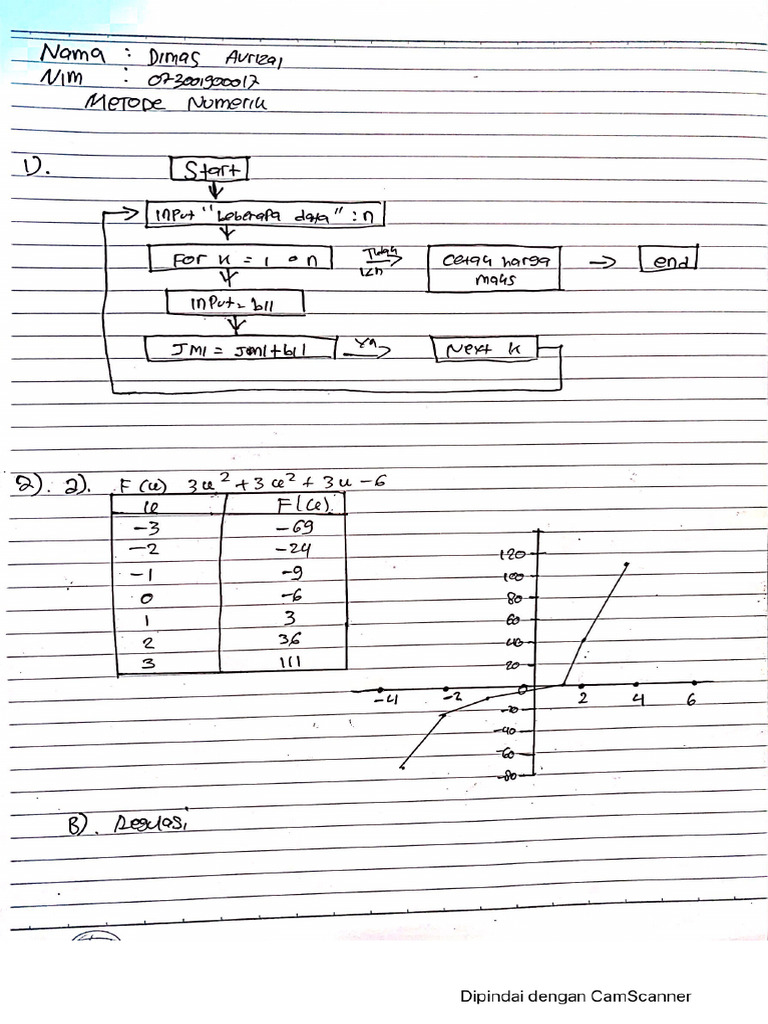 Nama : Dimas Avrizal
Nim : 073001900017
Metode Numerik
1).
Start
input "beberapa data" : n
For k = 1 n
Tidak
k<n
Cetak harga
maks
end
input = bil
Jml = Jml + bil
Ya
Next k
2). a). F(x) 3x² + 3x² + 3x - 6
x F(x)
-3 -69
-2 -24
-1 -9
0 -6
1 3
2 36
3 111
120
100
80
60
40
20
-4 -2 0 2 4 6
-20
-40
-60
-80
B).
Dipindai dengan CamScanner